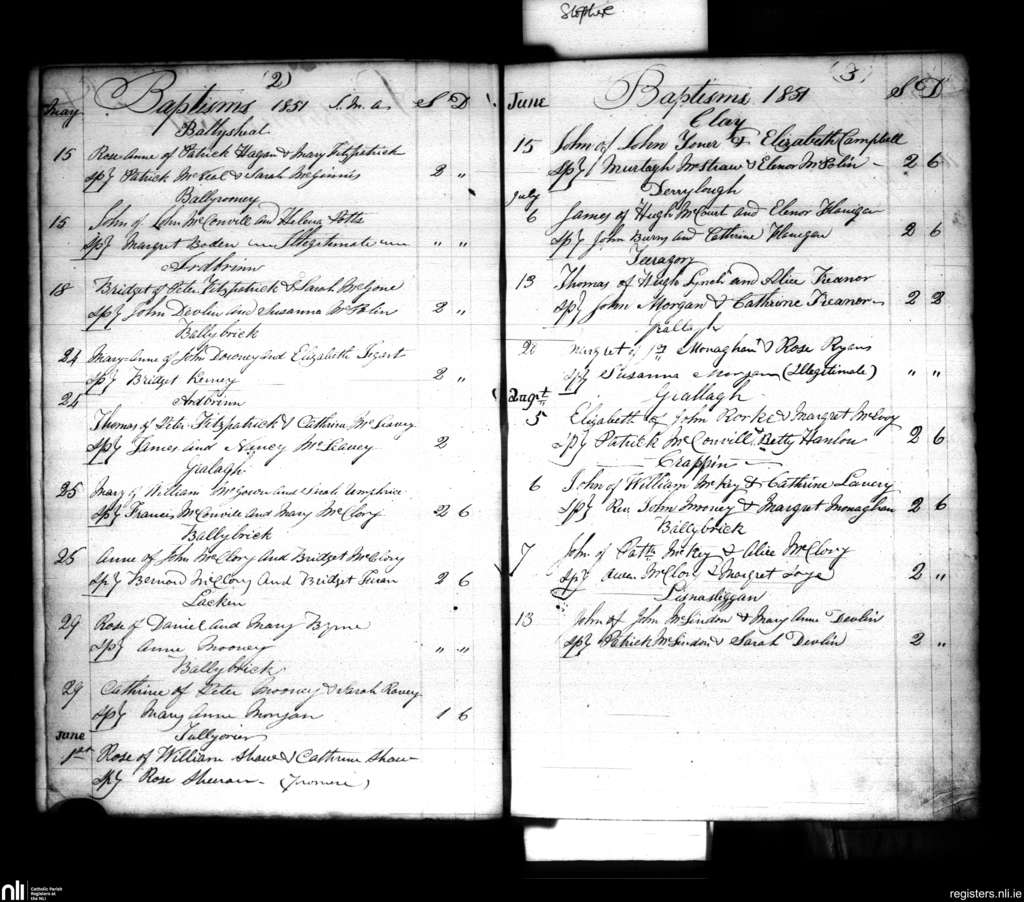 Stopher
(2)
May Baptisms 1851 S. M. A. S D
Ballysheal
15 Rose Anne of Patrick Hagan & Mary Fitzpatrick
Sp} Patrick McVeal & Sarah McGinnis 2 "
Ballyroney
15 John of John McConvill and Helena
Sp} Margret Boden Illegitimate " "
Ardbrinn
18 Bridget of Peter Fitzpatrick & Sarah McGone
Sp} John Devlin and Susanna McPolin 2 "
Ballybrick
24 Mary Anne of John Downey and Elizabeth
Sp} Bridget Kerney 2 "
24 Ardbrinn
Thomas of Peter Fitzpatrick & Cathrine McLeavey
Sp} James and Nancy McLeavey 2
Gralagh
25 Mary of William McGovern and Sarah Umphrie
Sp} Francis McConvill and Mary McClory 2 6
Ballybrick
25 Anne of John McClory and Bridget McClory
Sp} Bernard McClory and Bridget 2 6
Lacken
29 Rose of Daniel and Mary Byrne
Sp} Anne Mooney " "
Ballybrick
29 Cathrine of Peter Mooney & Sarah Ravey
Sp} Mary Anne Morgan 1 6
June Tullyorier
1st Rose of William Shaw & Cathrine Shaw
Sp} Rose Sheeran
(3)
June Baptisms 1851 S D
Clay
15 John of John Toner & Elizabeth Campbell
Sp} Murtagh McGraw & Elenor McPolin 2 6
July Derrylough
6 James of Hugh McCourt and Elenor Flanigan
Sp} John Burns and Cathrine Flanigan 2 6
Teeragory
13 Thomas of Hugh Lynch and Alice Treanor
Sp} John Morgan & Cathrine Treanor 2 2
Grallagh
20 Margret of Monaghan & Rose Rogans
Sp} Susanna Morgan (Illegitimate) " "
Augst Grallagh
5 Elizabeth of John Rorke & Margret McEvoy
Sp} Patrick McConvill & Betty Hanlon 2 6
Crappin
6 John of William McKey & Cathrine Lavery
Sp} Rev John Mooney & Margret Monaghan 2 6
Ballybrick
7 John of Patk McKey & Alice McClory
Sp} Owen McClory & Margret 2 "
Lisnasliggan
13 John of John McLindon & Mary Anne Devlin
Sp} Patrick McLindon & Sarah Devlin 2 "
nli Catholic Parish
Registers at
the NLI
registers.nli.ie